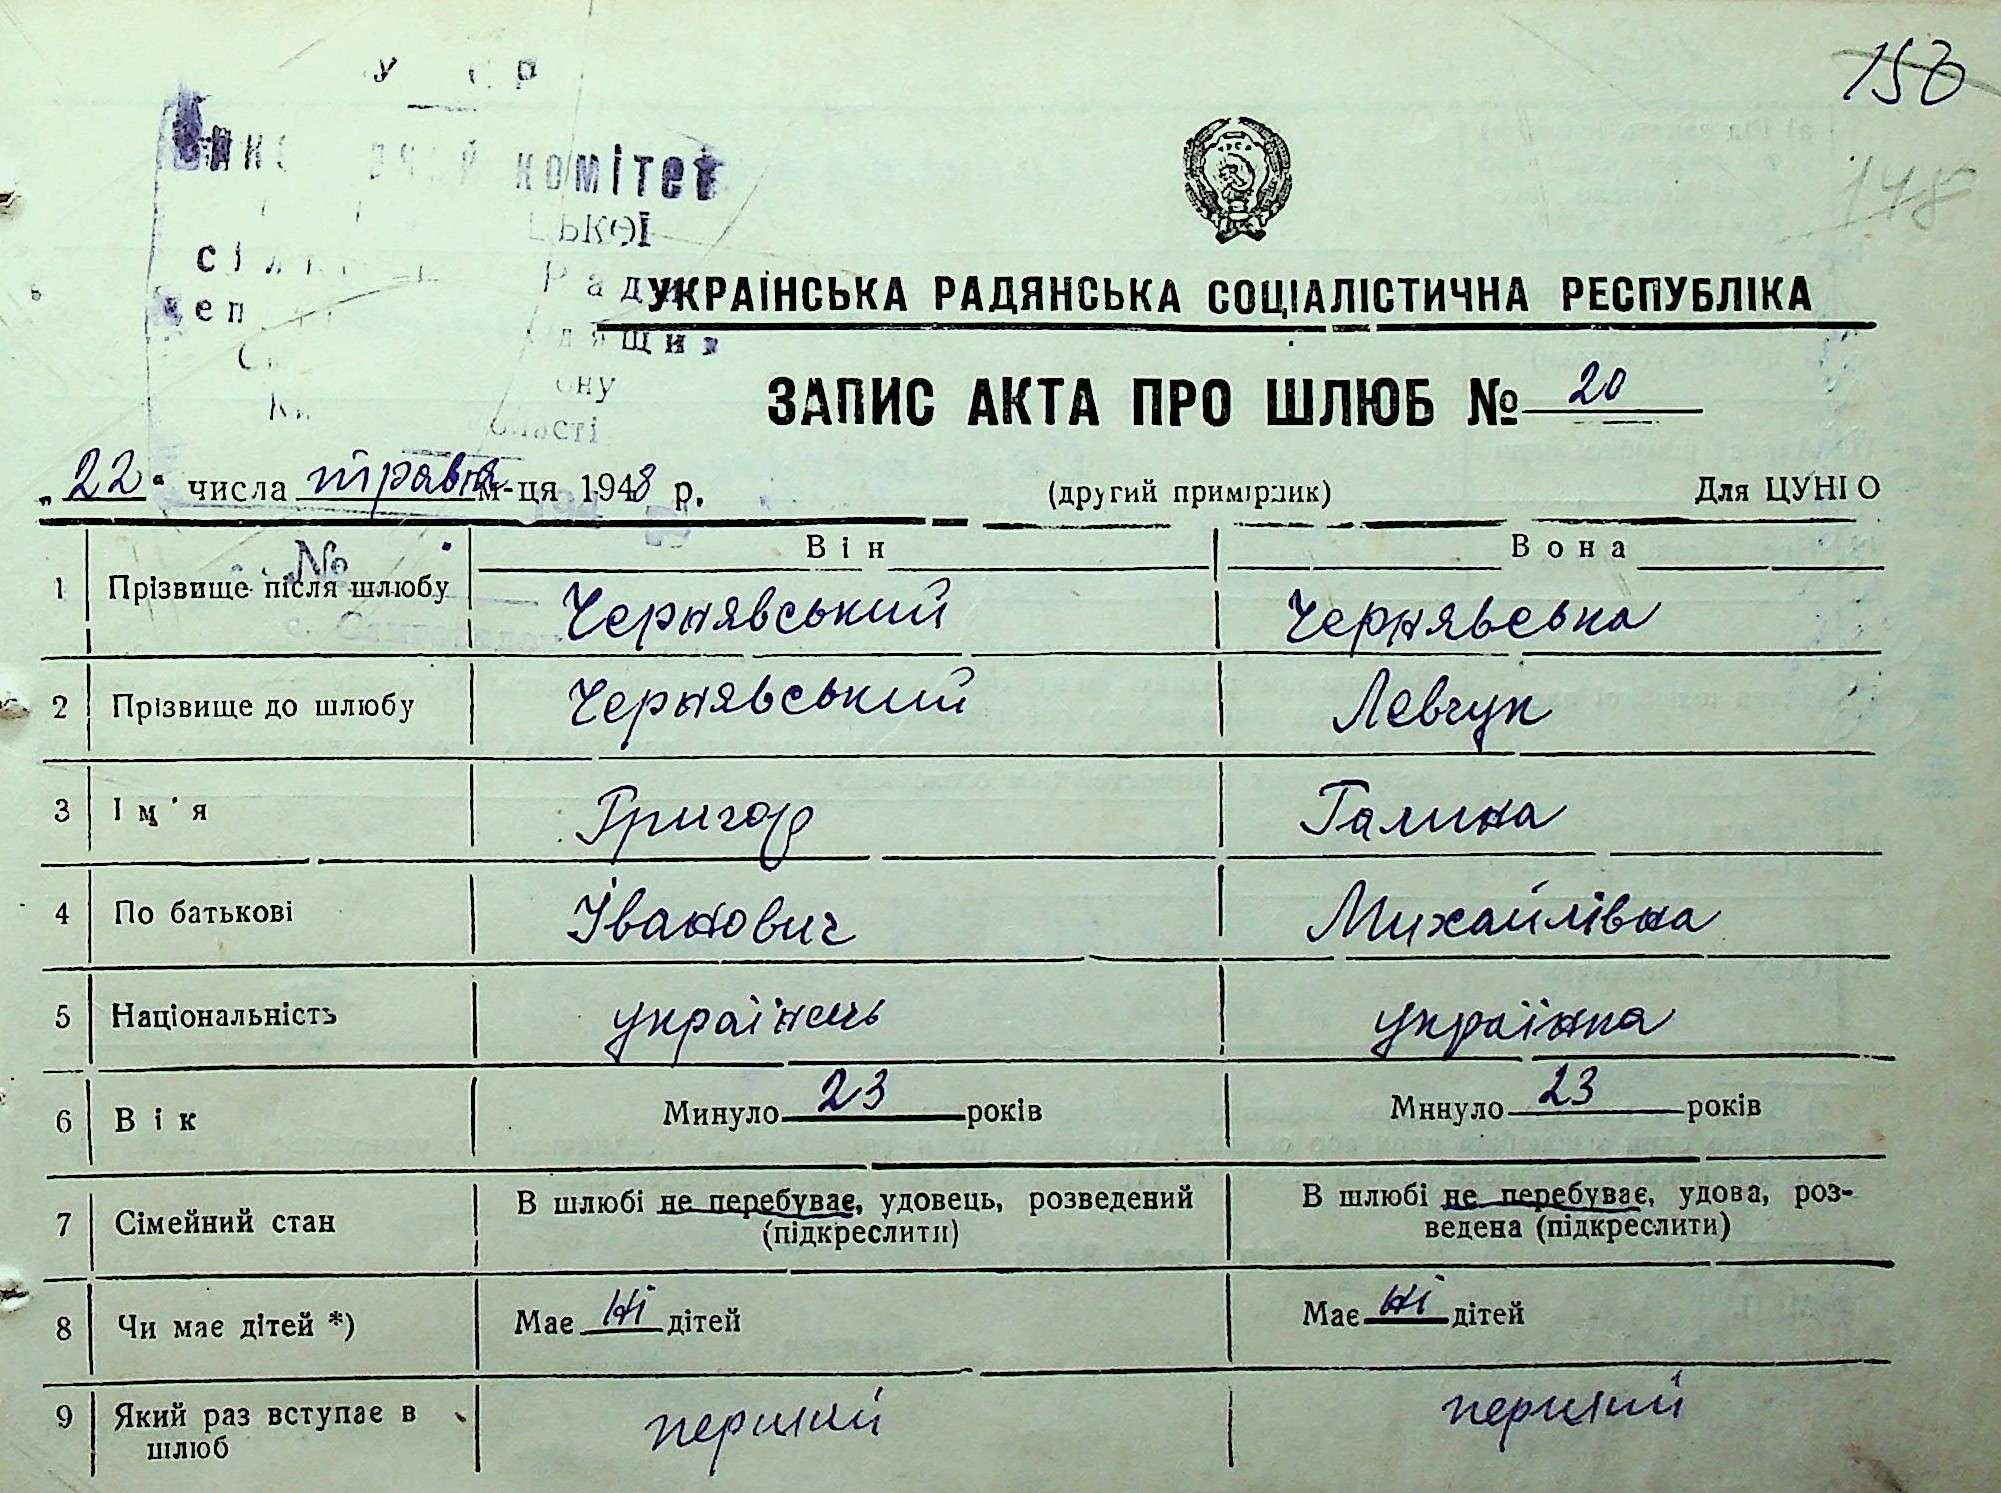 158
148
У Р
комітет
ської
Ради
ону
області
УКРАЇНСЬКА РАДЯНСЬКА СОЦІАЛІСТИЧНА РЕСПУБЛІКА
ЗАПИС АКТА ПРО ШЛЮБ № 20
„22“ числа травня м-ця 1948 р. (другий примірник) Для ЦУНГО
№
Він Вона
1 Прізвище після шлюбу Чернявський Чернявська
2 Прізвище до шлюбу Чернявський Левчук
3 Ім'я Григор Галина
4 По батькові Іванович Михайлівна
5 Національність українець українка
6 Вік Минуло 23 років Минуло 23 років
7 Сімейний стан В шлюбі не перебуває, удовець, розведений (підкреслити) В шлюбі не перебуває, удова, роз-
ведена (підкреслити)
8 Чи має дітей *) Має ні дітей Має ні дітей
9 Який раз вступає в шлюб перший перший